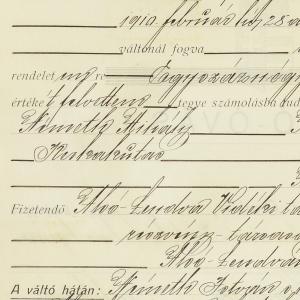 1910. február hó 28
váltónál fogva
rendelet en re Egyszáznégy
értéket felvettem tegye számolásba
Németh Mihály
Kerkakutas
Fizetendő Alsó-Lendva Vidéki ta
részvény-társas
Alsó-Lendván
A váltó hátán: Németh István